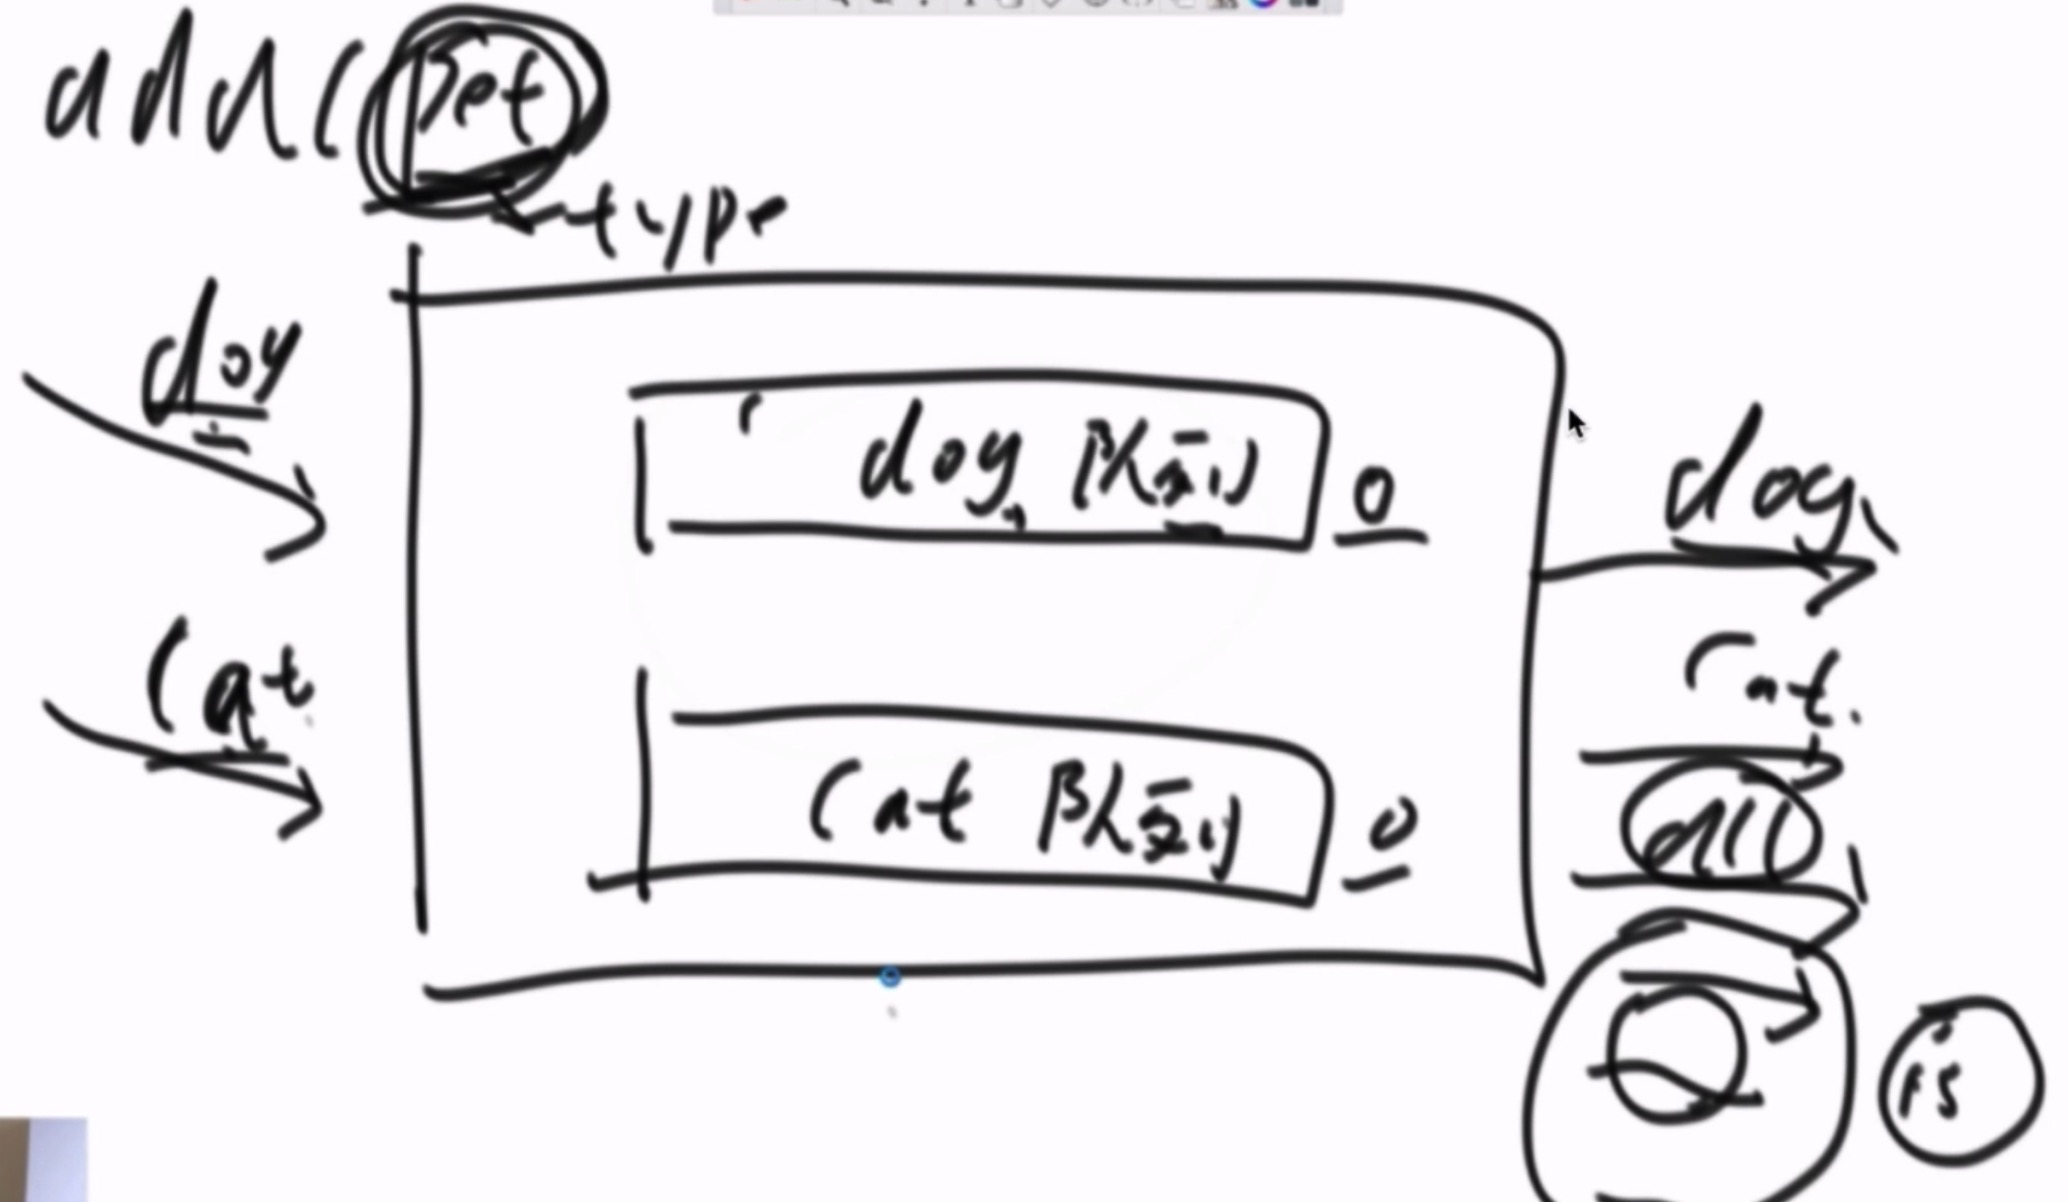 add(Pet
type
dog
cat
dog 队列 0
cat 队列 0
dog
cat
all
is